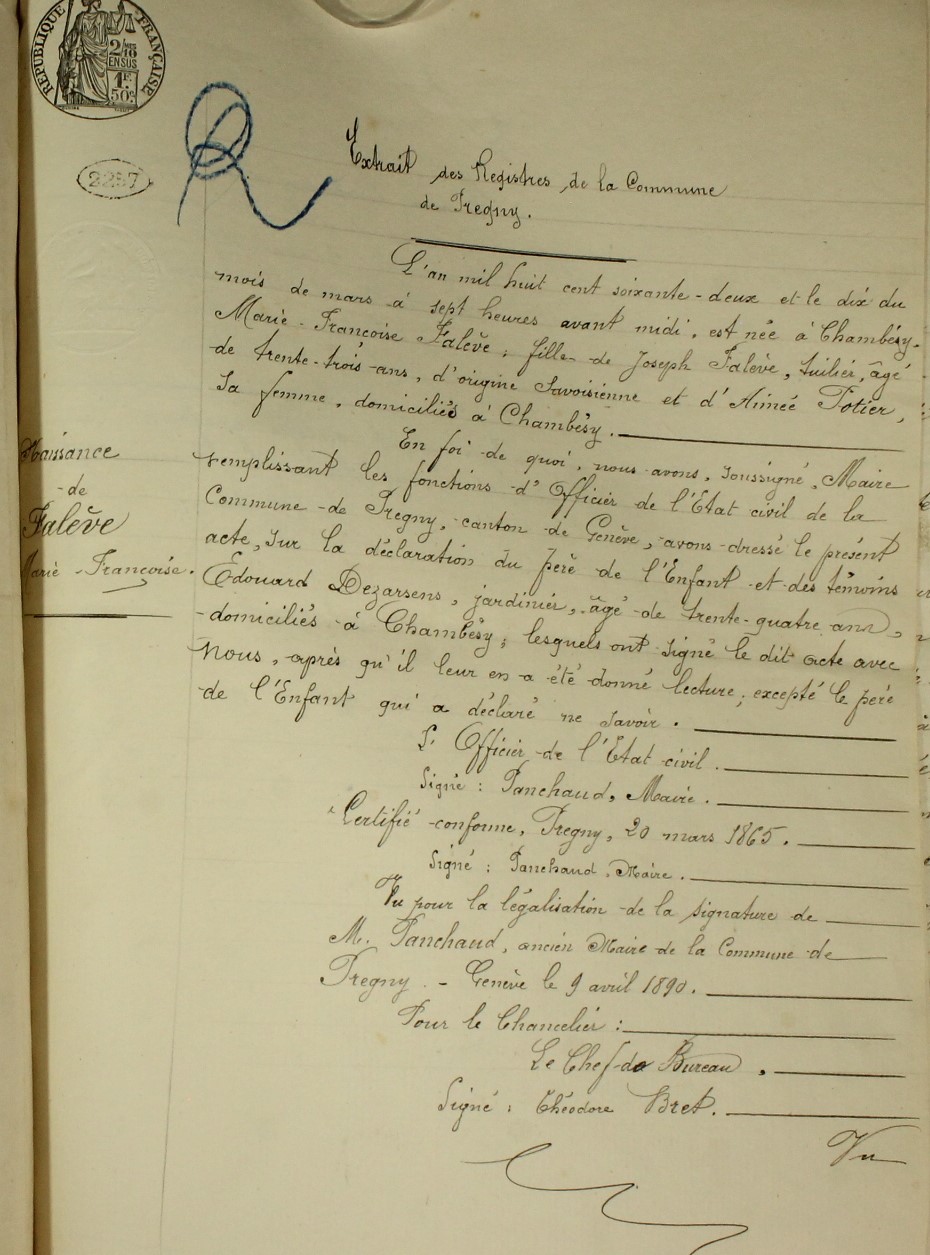 RÉPUBLIQUE FRANÇAISE
2/10
EN SUS
1F.
50c
2257
Extrait des Registres de la Commune
de Pregny.
L'an mil huit cent soixante-deux et le dix du
mois de mars à sept heures avant midi, est née à Chambésy.
Marie-Françoise Falève, fille de Joseph Falève, tuilier, âgé
de trente-trois ans, d'origine Savoisienne et d'Aimée Potier,
sa femme, domiciliés à Chambésy.
En foi de quoi, nous avons, soussigné, Maire
remplissant les fonctions d'Officier de l'Etat civil de la
Commune de Pregny, canton de Genève, avons dressé le présent
acte, sur la déclaration du père de l'Enfant et des témoins
Edouard Dezarsens, jardinier, âgé de trente-quatre ans,
domiciliés à Chambésy; lesquels ont signé le dit acte avec
Nous, après qu'il leur en a été donné lecture; excepté le père
de l'Enfant qui a déclaré ne savoir.
L'Officier de l'Etat civil.
Signé: Panchaud, Maire.
Certifié conforme, Pregny, 20 mars 1865.
Signé: Panchaud, Maire.
Vu pour la légalisation de la signature de
M. Panchaud, ancien Maire de la Commune de
Pregny. - Genève le 9 avril 1890.
Pour le Chancelier:
Le Chef de Bureau,
Signé: Théodore Bret.
Vu
Naissance
de
Falève
Marie-Françoise.